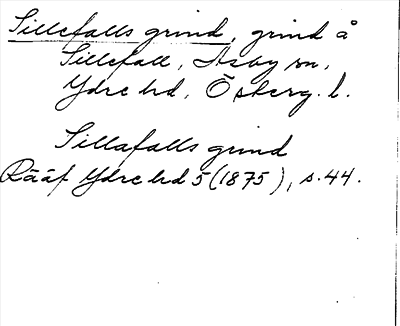 Sillefalls grind, grind å
Sillefall, Asby sn,
Ydre hd, Österg. l.
Sillafalls grind
Rääf Ydre hd 5 (1875), s. 44.